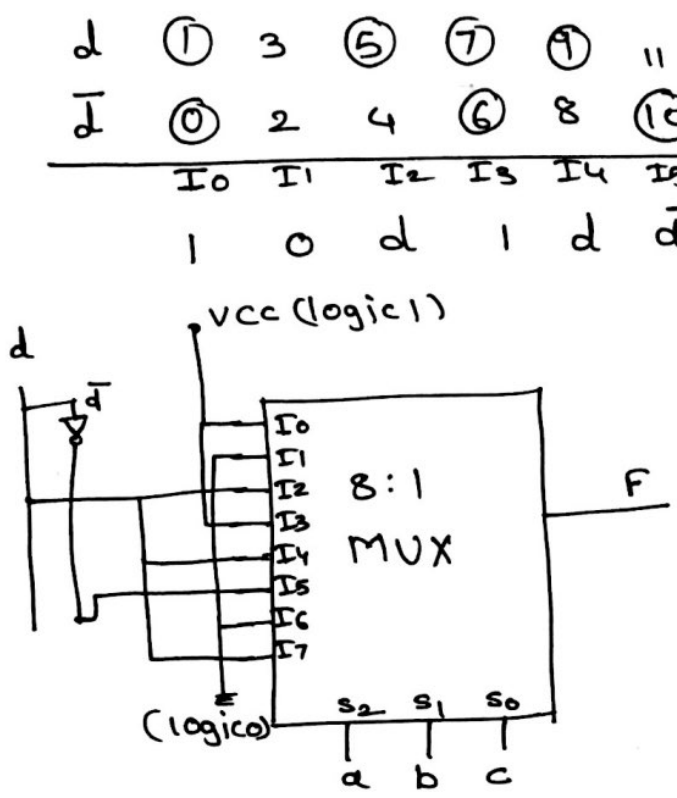 d 1 3 5 7 9 11
d̅ 0 2 4 6 8
I0 I1 I2 I3 I4
1 0 d 1 d
VCC (logic 1)
d
d̅
I0
I1
I2
I3
I4
I5
I6
I7
8:1
MUX
F
S2 S1 S0
(logic0)
a b c